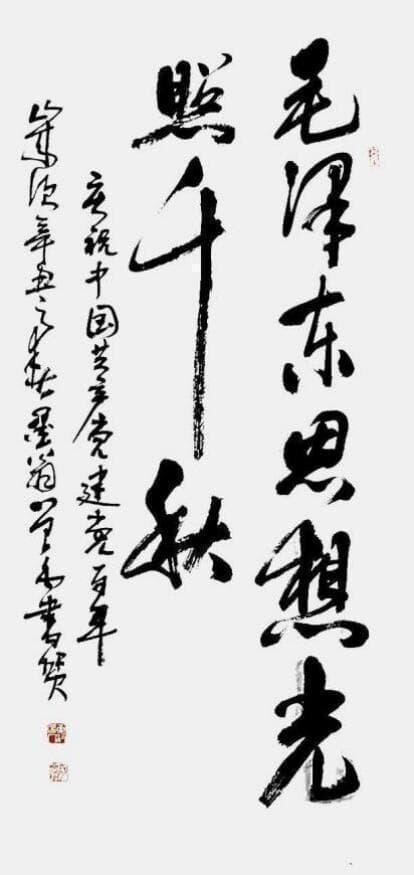 毛泽东思想光
照千秋
庆祝中国共产党建党百年
嵗次辛丑之秋墨翁书贺